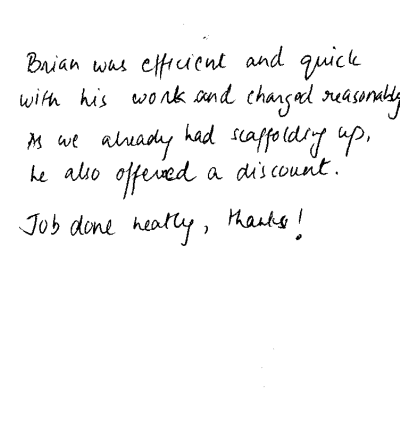 Brian was efficient and quick
with his work and charged reasonably
As we already had scaffolding up,
he also offered a discount.
Job done neatly, thanks!